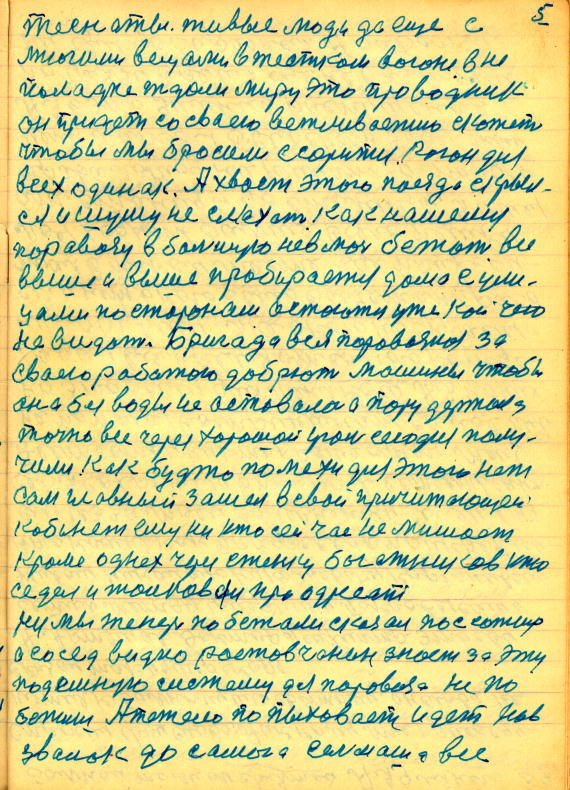 5
теснаты. живые люди да еще с
многими вещами в жестком вогоне в не
поладке ждали миру это проводник
он придети со сваею вежливаетию скожети
чтобы мы бросили ссорится. Рогон для
всех одинак. А хвост этого поезда скрыл-
ся и шуму не слыхат. Как нашему
поравозу в большую невмоч бежат все
выше и выше пробирается дома с ули-
цами посторонам остоются уже кой чего
не видат. Бригада вся поровозная за
сваего работого добрют машины чтобы
она без воды не оставалас а пару держала
точно все через хорошой урок сегодня полу-
чили. Как будто помехи для этого нет
сам главный зашел в свой причитающей
кобинет ему ни кто сей час не мишает
кроме однех чуж стенку бы стриков кто
седел и толковали про одне
ну мы теперь побежали сказал пассожир
а сосед видно ростовчанин знает за эту
подешную систему для паровоза не по
бежим А тежело попыховает идет нов
звалок до самого селмаша все